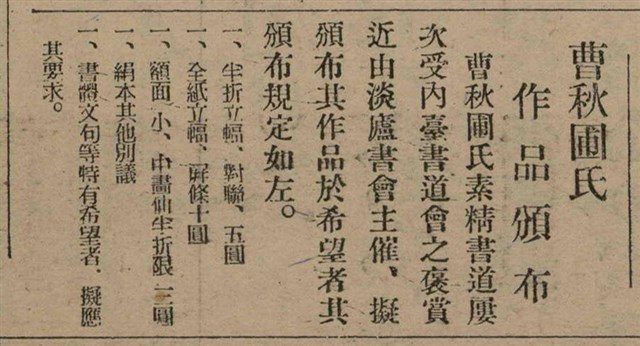 曹秋圃氏
作品頒布
曹秋圃氏素精書道屢
次受內臺書道會之褒賞
近由淡廬書會主催、擬
頒布其作品於希望者其
頒布規定如左。
一、半折立幅、對聯、五圓
一、全紙立幅、屏條十圓
一、額面小、中畫仙半折限三圓
一、絹本其他別議
一、書體文句等特有希望者、擬應
其要求。